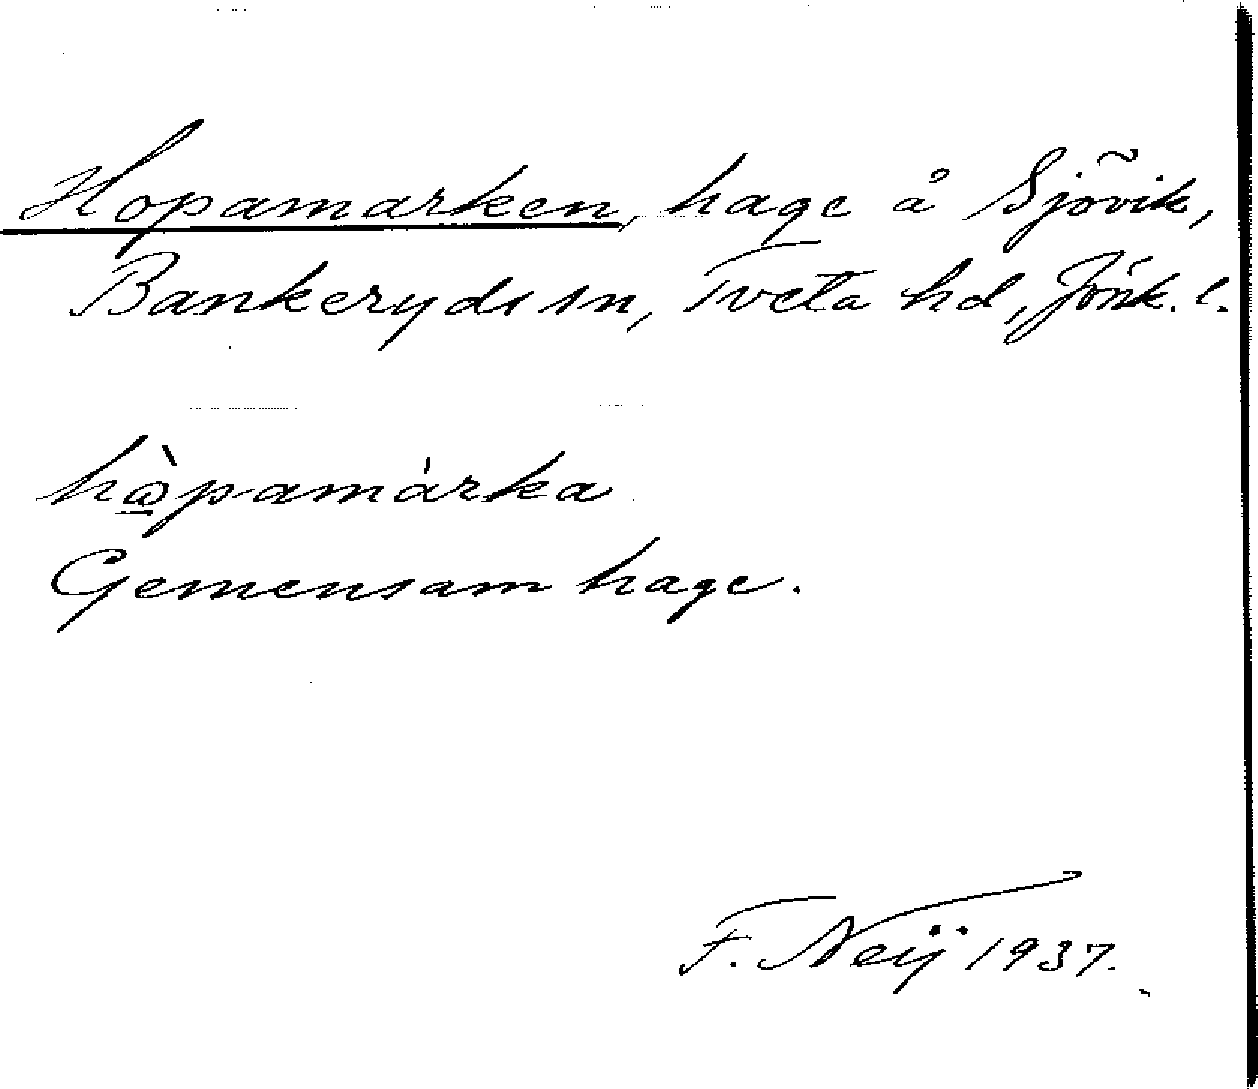 Hopamarken, hage å Sjövik,
Bankeryds sn, Tveta hd, Jönk. l.
hòpamárka
Gemensam hage.
F. Neij 1937.